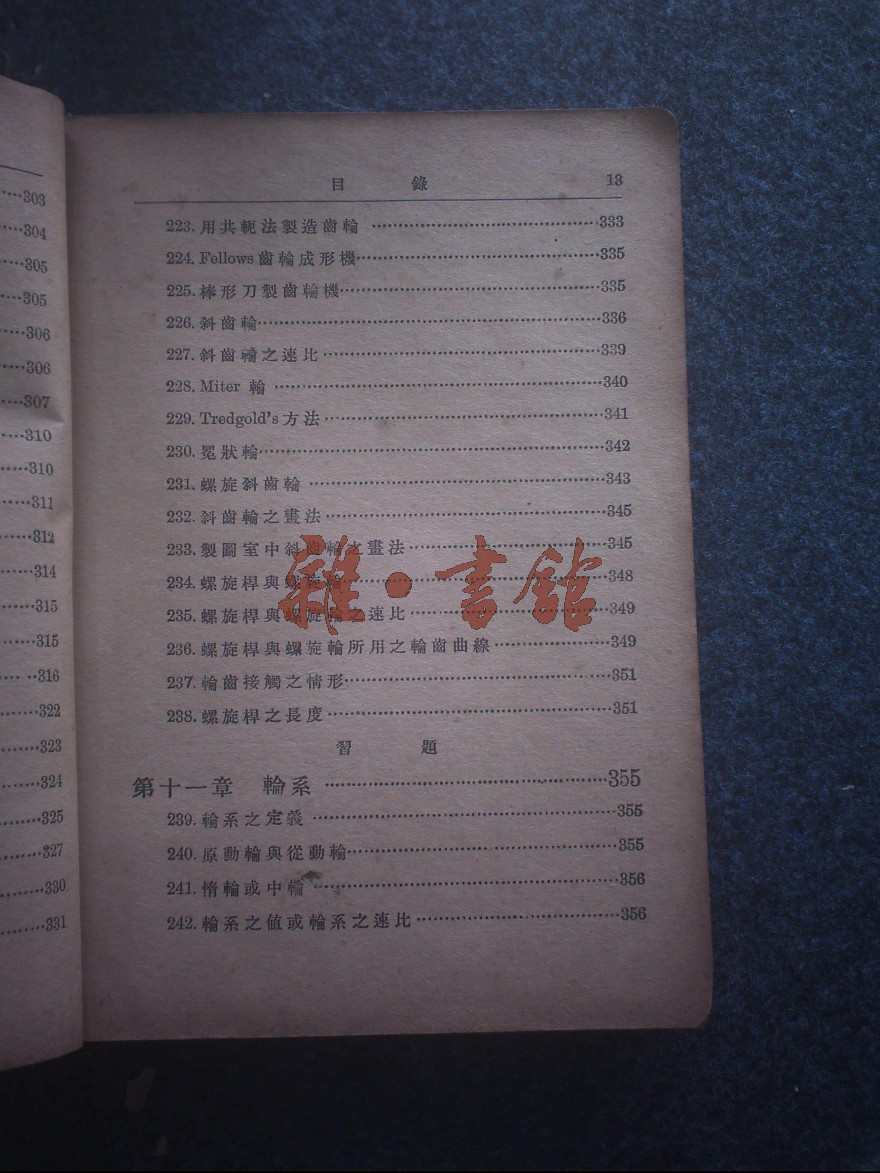 303
304
305
305
306
306
307
310
310
311
312
314
315
315
316
322
323
324
325
327
330
331
目錄 13
223. 用共軛法製造齒輪 333
224. Fellows齒輪成形機 335
225. 棒形刀製齒輪機 335
226. 斜齒輪 336
227. 斜齒輪之速比 339
228. Miter 輪 340
229. Tredgold's方法 341
230. 冕狀輪 342
231. 螺旋斜齒輪 343
232. 斜齒輪之畫法 345
233. 製圖室中斜齒輪之畫法 345
234. 螺旋桿與螺旋輪 348
235. 螺旋桿與螺旋輪之速比 349
236. 螺旋桿與螺旋輪所用之輪齒曲線 349
237. 輪齒接觸之情形 351
238. 螺旋桿之長度 351
習題
第十一章 輪系 355
239. 輪系之定義 355
240. 原動輪與從動輪 355
241. 惰輪或中輪 356
242. 輪系之值或輪系之速比 356
雜·書館